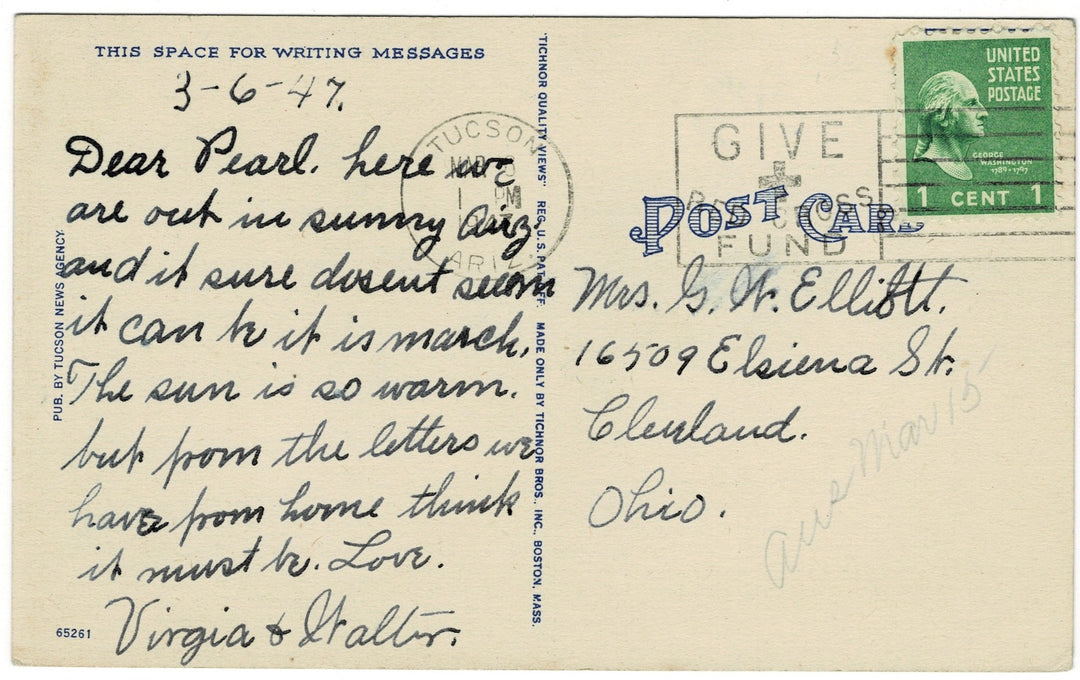 THIS SPACE FOR WRITING MESSAGES
3-6-47.
Dear Pearl. here we
are out in sunny Ariz
and it sure dosent seem
it can be it is march.
The sun is so warm.
but from the letters we
have from home think
it must be. Love.
Virgia & Walter.
65261
PUB. BY TUCSON NEWS AGENCY.
"TICHNOR QUALITY VIEWS" REG. U. S. PAT. OFF. MADE ONLY BY TICHNOR BROS., INC., BOSTON, MASS.
TUCSON
MAR
1 PM
ARIZ.
GIVE
RED CROSS
FUND
UNITED
STATES
POSTAGE
GEORGE
WASHINGTON
1789-1797
1 CENT 1
POST CARD
Mrs. G. W. Elliott.
16509 Elsiena St.
Cleveland.
Ohio.
Ans Mar 15